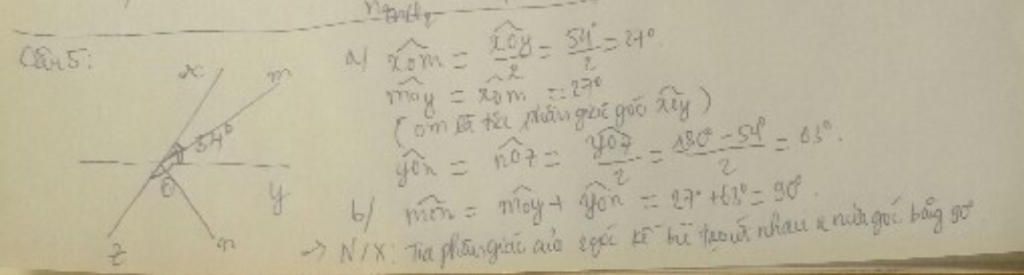 Câu 5:
x
m
54°
O
y
z
n
a/ xOm = xOy/2 = 54°/2 = 27°.
mOy = xOm = 27°
(om là tia phân giác góc xOy)
yOn = nOz = yOz/2 = 180° - 54°/2 = 63°.
b/ mOn = mOy + yOn = 27° + 63° = 90°.
→ N/X: Tia phân giác của 2 góc kề bù nhau góc bằng 90°